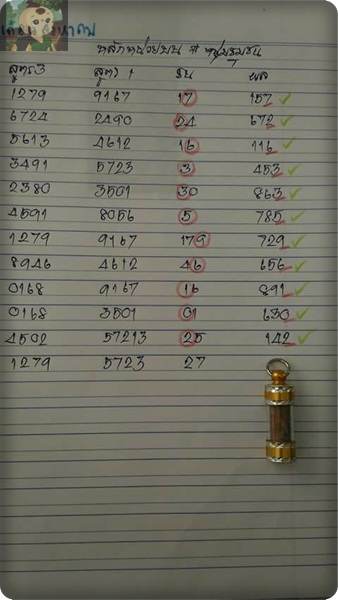 หลักหน่วยบน # ทุ่มชุมชน
สูตร3 สูตร 1 ชน ผล
1279 9167 17 157
6724 2490 24 672
5613 4612 16 116
3491 5723 3 453
2380 3501 30 863
4591 8056 5 785
1279 9167 179 729
8946 4612 46 656
0168 9167 16 891
0168 3501 01 630
4502 57213 25 142
1279 5723 27